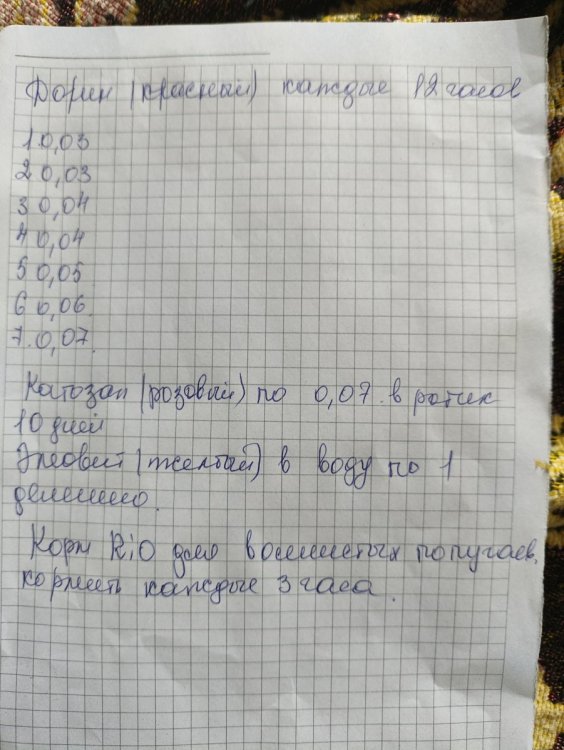 Дорин (красный) каждые 12 часов
1 0,03
2 0,03
3 0,04
4 0,04
5 0,05
6 0,06
7. 0,07
Катозал (розовый) по 0,07 в ротик
10 дней
Элеовит (желтый) в воду по 1
делению.
Корм RiO для волнистых попугаев,
кормить каждые 3 часа.